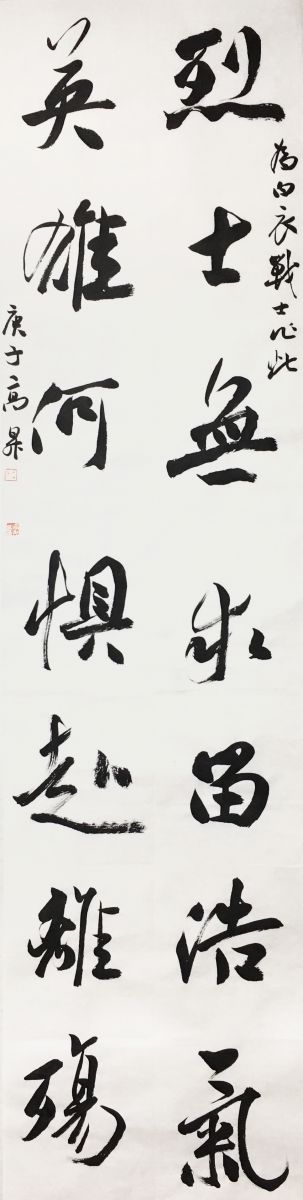 為白衣戰士作此
烈士無求留浩氣
英雄何惧赴離殤
庚子高昇